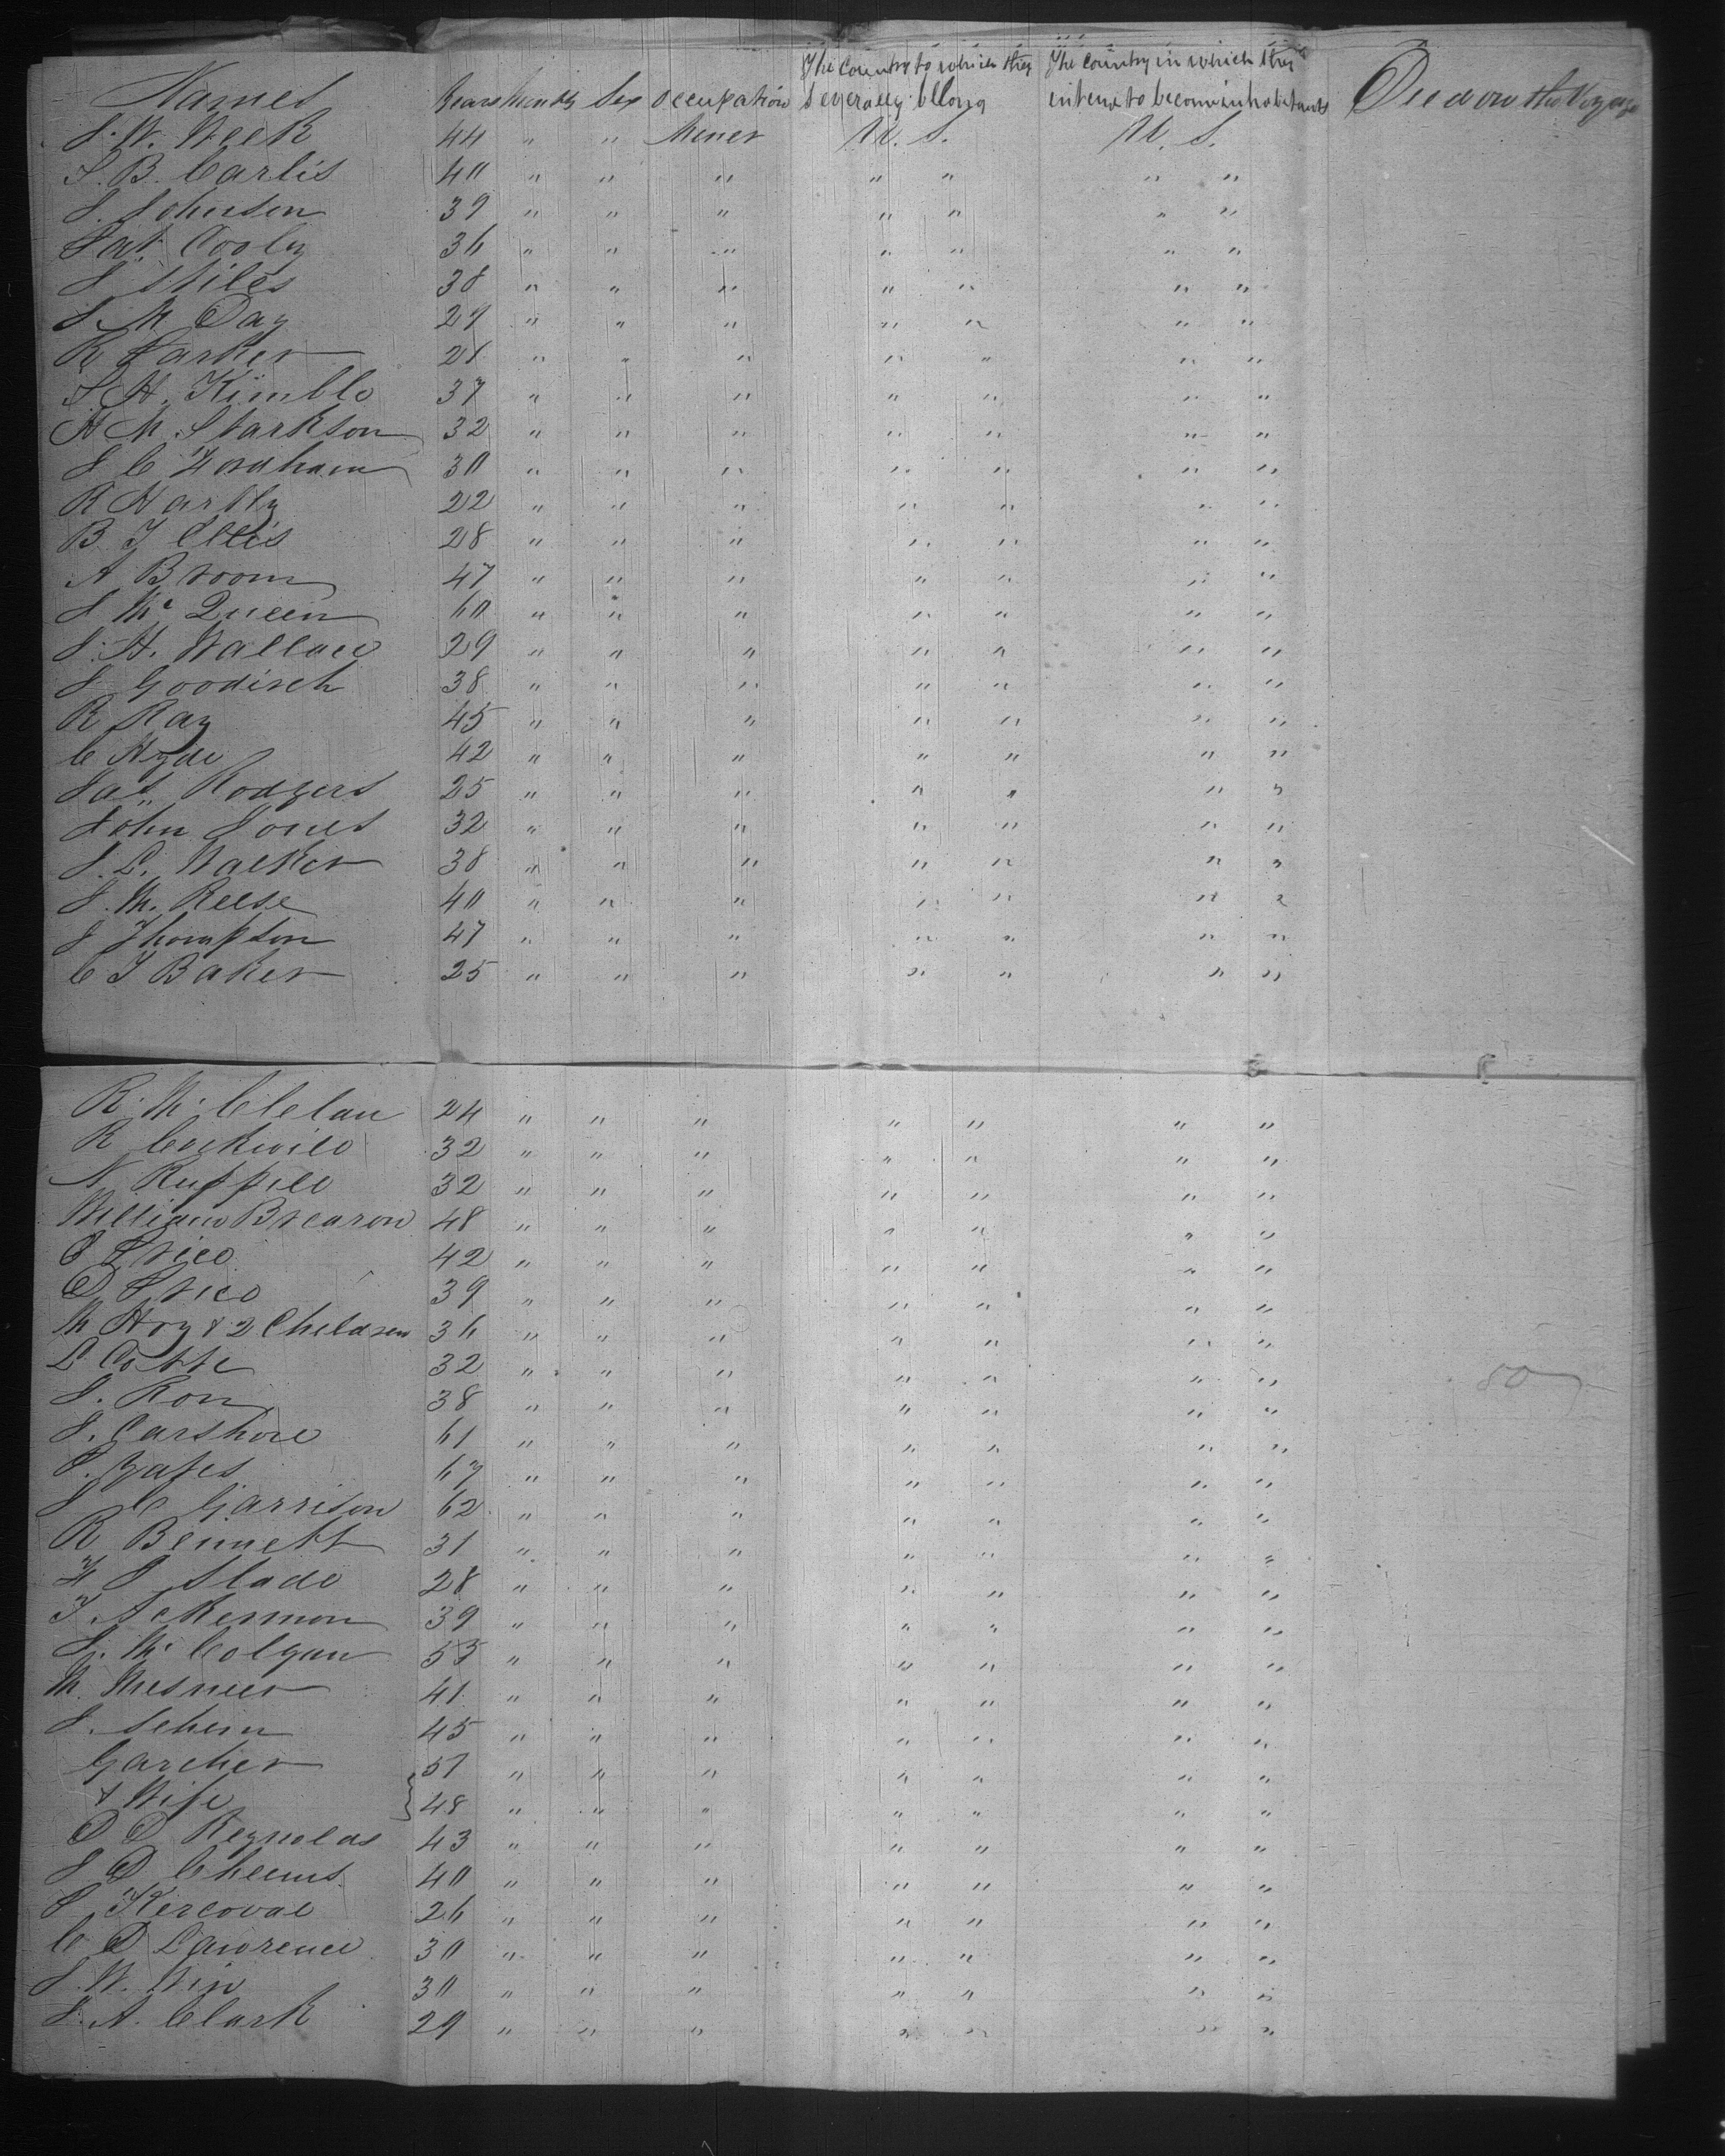 Names Years Months Sex Occupation The Country to which they severally belong The Country in which they intend to become inhabitants Died on the Voyage
J. W. Week 44 " " Miner U. S. U. S.
S. B. Carlis 40 " " " " " " "
J. Johnson 39 " " " " " " "
Pat. Cooly 36 " " " " " " "
J Stiles 38 " " " " " " "
J. M Day 29 " " " " " " "
R Parker 21 " " " " " " "
S. H. Kimble 37 " " " " " " "
H M Starkson 32 " " " " " " "
J C Fordham 30 " " " " " " "
R Hartly 22 " " " " " " "
B. F Ellis 28 " " " " " " "
A Broom 47 " " " " " " "
J Mc Queen 60 " " " " " " "
J. H. Wallace 29 " " " " " " "
J Goodisch 38 " " " " " " "
R Ray 45 " " " " " " "
C Hyde 42 " " " " " " "
Jas Rodgers 25 " " " " " " "
John Jones 32 " " " " " " "
J. L. Walker 38 " " " " " " "
J. M. Reese 40 " " " " " " "
J Thompson 47 " " " " " " "
C F Baker 25 " " " " " " "
R. Mc Clelan 24 " " " " " " "
R 32 " " " " " " "
N 32 " " " " " " "
William Brearon 48 " " " " " " "
Price 42 " " " " " " "
D Price 39 " " " " " " "
M Hoy & 2 Children 36 " " " " " " "
L 32 " " " " " " "
J. Ron 38 " " " " " " " 50
J. Carshore 61 " " " " " " "
67 " " " " " " "
J C Garrison 62 " " " " " " "
R Bennett 31 " " " " " " "
Slade 28 " " " " " " "
F. Ackermon 39 " " " " " " "
J. Mc Colgan 53 " " " " " " "
M. Mesnier 41 " " " " " " "
J. 45 " " " " " " "
Garcher 57 " " " " " " "
& Wife 48 " " " " " " "
Reynolds 43 " " " " " " "
J D 40 " " " " " " "
Kercoval 26 " " " " " " "
C D Lawrence 30 " " " " " " "
J. W. 30 " " " " " " "
J. A. Clark 29 " " " " " " "